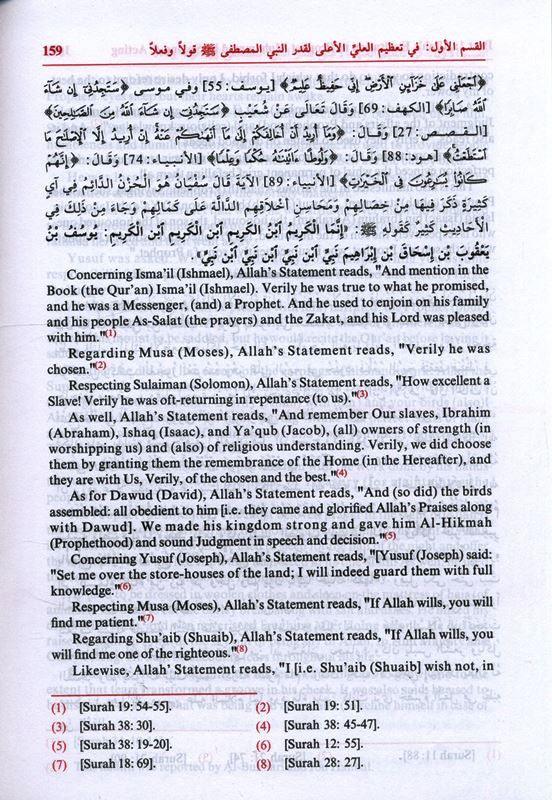 القسم الأول: في تعظيم العليّ الأعلى لقدر النبي المصطفى ﷺ قولاً وفعلاً
159
﴿اجْعَلْنِي عَلَى خَزَائِنِ الْأَرْضِ إِنِّي حَفِيظٌ عَلِيمٌ﴾ [يوسف: 55] وفي موسى ﴿سَتَجِدُنِي إِن شَاءَ
اللَّهُ صَابِرًا﴾ [الكهف: 69] وَقَالَ تَعَالَى عَنْ شُعَيْبٍ ﴿سَتَجِدُنِي إِن شَاءَ اللَّهُ مِنَ الصَّالِحِينَ﴾
[القصص: 27] وَقَالَ: ﴿وَمَا أُرِيدُ أَنْ أُخَالِفَكُمْ إِلَى مَا أَنْهَاكُمْ عَنْهُ إِنْ أُرِيدُ إِلَّا الْإِصْلَاحَ مَا
اسْتَطَعْتُ﴾ [هود: 88] وَقَالَ: ﴿وَلُوطًا آتَيْنَاهُ حُكْمًا وَعِلْمًا﴾ [الأنبياء: 74] وَقَالَ: ﴿إِنَّهُمْ
كَانُوا يُسَارِعُونَ فِي الْخَيْرَاتِ﴾ [الأنبياء: 89] الْآيَةَ قَالَ سُفْيَانُ هُوَ الْحُزْنُ الدَّائِمُ فِي آيٍ
كَثِيرَةٍ ذَكَرَ فِيهَا مِنْ خِصَالِهِمْ وَمَحَاسِنِ أَخْلَاقِهِمُ الدَّالَّةِ عَلَى كَمَالِهِمْ وَجَاءَ مِنْ ذَلِكَ فِي
الْأَحَادِيثِ كَثِيرٌ كَقَوْلِهِ ﷺ: "إِنَّمَا الْكَرِيمُ ابْنُ الْكَرِيمِ ابْنِ الْكَرِيمِ ابْنِ الْكَرِيمِ: يُوسُفُ بْنُ
يَعْقُوبَ بْنِ إِسْحَاقَ بْنِ إِبْرَاهِيمَ نَبِيٌّ ابْنُ نَبِيٍّ ابْنِ نَبِيٍّ ابْنِ نَبِيٍّ".
Concerning Isma'il (Ishmael), Allah's Statement reads, "And mention in the
Book (the Qur'an) Isma'il (Ishmael). Verily he was true to what he promised,
and he was a Messenger, (and) a Prophet. And he used to enjoin on his family
and his people As-Salat (the prayers) and the Zakat, and his Lord was pleased
with him."(1)
Regarding Musa (Moses), Allah's Statement reads, "Verily he was
chosen."(2)
Respecting Sulaiman (Solomon), Allah's Statement reads, "How excellent a
Slave! Verily he was oft-returning in repentance (to us)."(3)
As well, Allah's Statement reads, "And remember Our slaves, Ibrahim
(Abraham), Ishaq (Isaac), and Ya'qub (Jacob), (all) owners of strength (in
worshipping us) and (also) of religious understanding. Verily, we did choose
them by granting them the remembrance of the Home (in the Hereafter), and
they are with Us, Verily, of the chosen and the best."(4)
As for Dawud (David), Allah's Statement reads, "And (so did) the birds
assembled: all obedient to him [i.e. they came and glorified Allah's Praises along
with Dawud]. We made his kingdom strong and gave him Al-Hikmah
(Prophethood) and sound Judgment in speech and decision."(5)
Concerning Yusuf (Joseph), Allah's Statement reads, "[Yusuf (Joseph) said:
"Set me over the store-houses of the land; I will indeed guard them with full
knowledge."(6)
Respecting Musa (Moses), Allah's Statement reads, "If Allah wills, you will
find me patient."(7)
Regarding Shu'aib (Shuaib), Allah's Statement reads, "If Allah wills, you
will find me one of the righteous."(8)
Likewise, Allah' Statement reads, "I [i.e. Shu'aib (Shuaib] wish not, in
(1) [Surah 19: 54-55].
(2) [Surah 19: 51].
(3) [Surah 38: 30].
(4) [Surah 38: 45-47].
(5) [Surah 38: 19-20].
(6) [Surah 12: 55].
(7) [Surah 18: 69].
(8) [Surah 28: 27].